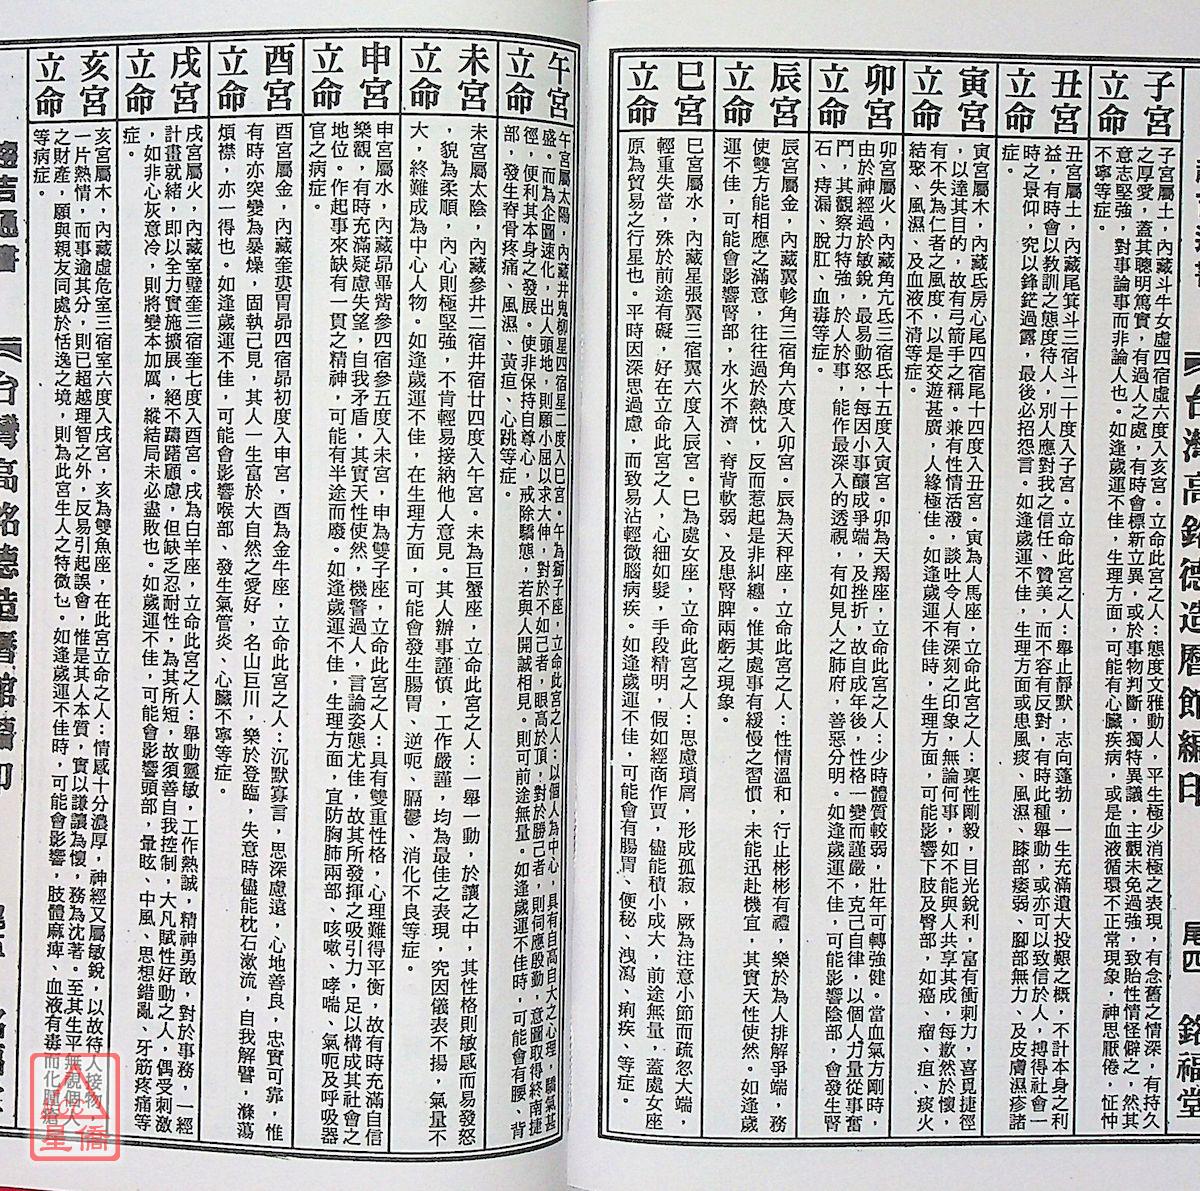 台灣高銘德造曆館編印
尾四
銘福堂
子宮立命
子宮屬土,內藏斗牛女虛四宿虛六度入亥宮。立命此宮之人:態度文雅動人,平生極少消極之表現,有念舊之情深,有持久
之厚愛,蓋其聰明篤實,有過人之處,有時會標新立異,或於事物判斷,獨特異議,主觀未免過強,致貽性情怪僻之,然其
意志堅強,對事論事而非論人也。如逢歲運不佳,生理方面,可能有心臟疾病,或是血液循環不正常現象,神思厭倦,怔忡
不寧等症。
丑宮立命
丑宮屬土,內藏尾箕斗三宿斗二十度入子宮。立命此宮之人:舉止靜默,志向蓬勃,一生充滿遺大投艱之概,不計本身之利
益,有時會以教訓之態度待人,別人應對我之信任、贊美,而不容有反對,有時此種舉動,或亦可以致信於人,搏得社會一
時之景仰,究以鋒鋩過露,最後必招怨言。如逢歲運不佳,生理方面或患風痰、風濕、膝部痿弱、腳部無力、及皮膚濕疹諸
症。
寅宮立命
寅宮屬木,內藏氐房心尾四宿尾十四度入丑宮。寅為人馬座,立命此宮之人:稟性剛毅,目光銳利,富有衝刺力,喜覓捷徑
,以達其目的,故有弓箭手之稱。兼有性情活潑,談吐令人有深刻之印象,無論何事,如不能與人共享其成,每歉然於懷,
有不失為仁者之風度,以是交遊甚廣,人緣極佳。如歲運不佳時,生理方面,可能影響下肢及臀部,如癌、瘤、疽、痰火
結聚、風濕、及血液不清等症。
卯宮立命
卯宮屬火,內藏角亢氐三宿氐十五度入寅宮。卯為天羯座,立命此宮之人:少時體質較弱,壯年可轉強健。當血氣方剛時,
由於神經過於敏銳,最易動怒,每因小事釀成爭端,及挫折,故自成年後,性格一變而謹嚴,克己自律,以個人力量從事奮
鬥,其觀察力特強,於人於事,能作最深入的透視,有如見人之肺府,善惡分明。如逢歲運不佳,可能影響陰部,會發生腎
石、痔漏、脫肛、血毒等症。
辰宮立命
辰宮屬金,內藏翼軫角三宿角六度入卯宮。辰為天秤座,立命此宮之人:性情溫和,行止彬彬有禮,樂於為人排解爭端,務
使雙方能相應之滿意,往往過於熱忱,反而惹起是非糾纏。惟其處事有緩慢之習慣,未能迅赴機宜,其實天性使然。如逢歲
運不佳,可能會影響腎部,水火不濟、脊背軟弱、及患腎脾兩虧之現象。
巳宮立命
巳宮屬水,內藏星張翼三宿翼六度入辰宮。巳為處女座,立命此宮之人:思慮瑣屑,形成孤寂,厥為注意小節而疏忽大端,
輕重失當,殊於前途有礙,好在立命此宮之人,心細如髮,手段精明,假如經商作賈,儘能積小成大,前途無量,蓋處女座
原為貿易之行星也。平時因深思過慮,而致易沾輕微腦病疾。如逢歲運不佳,可能會有腸胃、便秘、洩瀉、痢疾、等症。
午宮立命
午宮屬太陽,內藏井鬼柳星四宿星二度入巳宮。午為獅子座,立命此宮之人:以個人為中心,具有自高自大之心理,驕氣甚
盛。而為企圖速化,出人頭地,則願小屈以求大伸,對於不如己者,眼高於頂,對於勝己者,則伺應殷勤,意圖取得終南捷
徑,便利其本身之發展。使非保持自尊心,戒除驕態,若與人開誠相見。則可前途無量。如逢歲運不佳時,可能會有腰、背
部,發生脊骨疼痛、風濕、黃疸、心跳等症。
未宮立命
未宮屬太陰,內藏參井二宿井宿廿四度入午宮。未為巨蟹座,立命此宮之人:一舉一動,於讓之中,其性格則敏感而易發怒
,貌為柔順,內心則極堅強,不肯輕易接納他人意見。其人辦事謹慎,工作嚴謹,均為最佳之表現,究因儀表不揚,氣量不
大,終難成為中心人物。如逢歲運不佳,在生理方面,可能會發生腸胃、逆呃、膈鬱、消化不良等症。
申宮立命
申宮屬水,內藏昴畢觜參四宿參五度入未宮,申為雙子座,立命此宮之人:具有雙重性格,心理難得平衡,故有時充滿自信
樂觀,有時充滿疑慮失望,自我矛盾,其實天性使然,機警過人,言論姿態尤佳,故其所發揮之吸引力,足以構成其社會之
地位。作起事來缺有一貫之精神,可能有半途而廢。如逢歲運不佳,生理方面,宜防胸肺兩部、咳嗽、哮喘、氣呃及呼吸器
官之病症。
酉宮立命
酉宮屬金,內藏奎婁胃昴四宿昴初度入申宮,酉為金牛座,立命此宮之人:沉默寡言,思深慮遠,心地善良,忠實可靠,惟
有時亦突變為暴燥,固執己見,其人一生富於大自然之愛好,名山巨川,樂於登臨,失意時儘能枕石漱流,自我解譬,滌蕩
煩襟,亦一得也。如逢歲運不佳,可能會影響喉部、發生氣管炎、心臟不寧等症。
戌宮立命
戌宮屬火,內藏室璧奎三宿奎七度入酉宮。戌為白羊座,立命此宮之人:舉動靈敏,工作熱誠,精神勇敢,對於事務,一經
計畫就緒,即以全力實施擴展,絕不躊躇顧慮,但缺乏忍耐性,為其所短,故須善自我控制,大凡賦性好動之人,偶受刺激
,如非心灰意冷,則將變本加厲,縱結局未必盡敗也。如歲運不佳,可能會影響頭部、暈眩、中風、思想錯亂、牙筋疼痛等
症。
亥宮立命
亥宮屬木,內藏虛危室三宿室六度入戌宮,亥為雙魚座,在此宮立命之人:情感十分濃厚,神經又屬敏銳,以故待人接物
一片熱情,而事逾其分,則已超越理智之外,反易引起誤會,惟是其人本質,實以謙讓為懷,務為沈著。至其生平無視個人
之財產,願與親友同處於恬逸之境,則為此宮生人之特徵也。如逢歲運不佳時,可能會影響,肢體麻痺、血液有毒而化膿瘡
等病症。
星僑